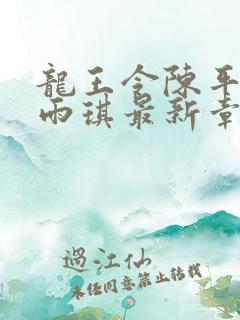 龍王令陳平
雨琪最新章
過江仙
未經同意禁止轉載